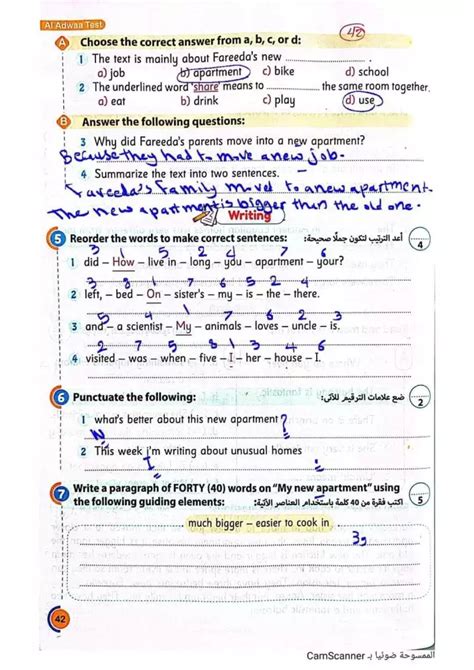 Al Adwaa Test
42
A Choose the correct answer from a, b, c, or d:
1 The text is mainly about Fareeda's new
a) job b) apartment c) bike d) school
2 The underlined word 'share' means to the same room together.
a) eat b) drink c) play d) use
B Answer the following questions:
3 Why did Fareeda's parents move into a new apartment?
Because they had to move a new job.
4 Summarize the text into two sentences.
Fareeda's family moved to a new apartment.
The new apartment is bigger than the old one.
Writing
5 Reorder the words to make correct sentences: أعد الترتيب لتكون جملًا صحيحة: 4
3 1 5 2 4 7 6
1 did – How – live in – long – you – apartment – your?
3 8 1 7 6 5 2 4
2 left, – bed – On – sister's – my – is – the – there.
5 4 1 7 6 2 3
3 and – a scientist – My – animals – loves – uncle – is.
5 7 8 1 3 4 6
4 visited – was – when – five – I – her – house – I.
6 Punctuate the following: ضع علامات الترقيم للآتي: 2
1 what's better about this new apartment?
W
2 This week i'm writing about unusual homes
I
7 Write a paragraph of FORTY (40) words on "My new apartment" using
the following guiding elements: اكتب فقرة من 40 كلمة باستخدام العناصر الآتية: 5
much bigger – easier to cook in
42
الممسوحة ضوئيا بـ CamScanner